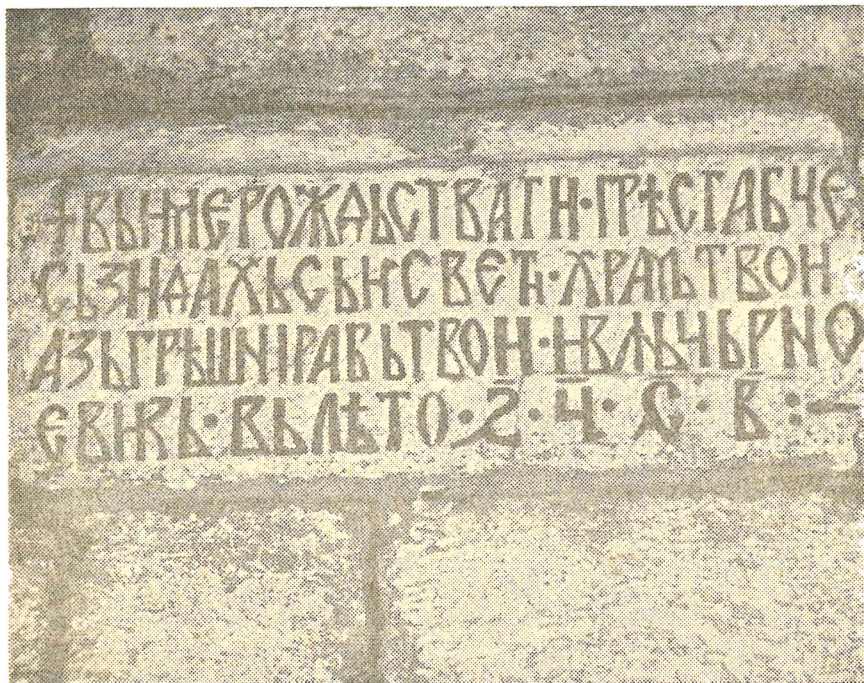 +ВЬИМЕРОЖДЬСТВАТИ·ПРѢСТАБЧЕ
СЬЗИДАХЬСЬИСВЕТИ·ХРАМЬТВОИ
АЗЬГРѢШНІРАБЬТВОИ·ИВАЬЧЬРНО
ЕВИКЬ·ВЬЛѢТО·Ƶ·Ч·С·В:—